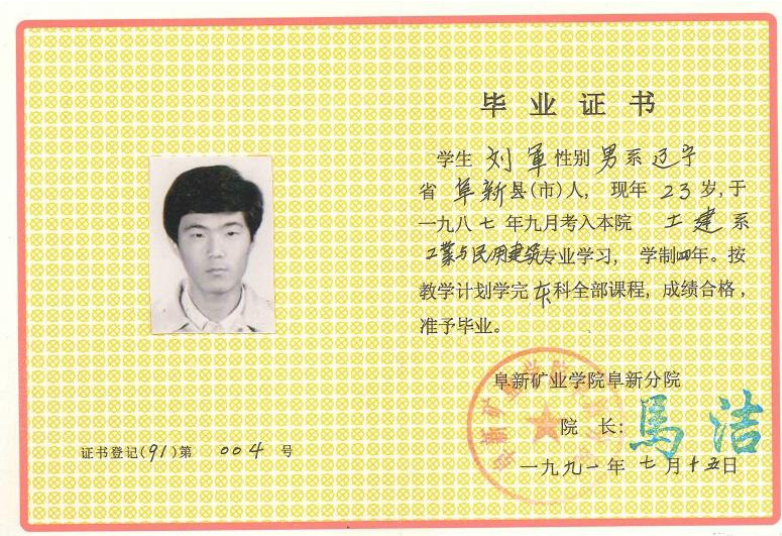 毕业证书
学生 刘军 性别 男 系 辽宁
省 阜新 县(市)人, 现年 23 岁,于
一九八七年九月考入本院 土建 系
工业与民用建筑专业学习, 学制四年。按
教学计划学完 本科全部课程, 成绩合格,
准予毕业。
阜新矿业学院阜新分院
院 长: 馬洁
一九九一年 七月十五日
证书登记(91)第 004 号